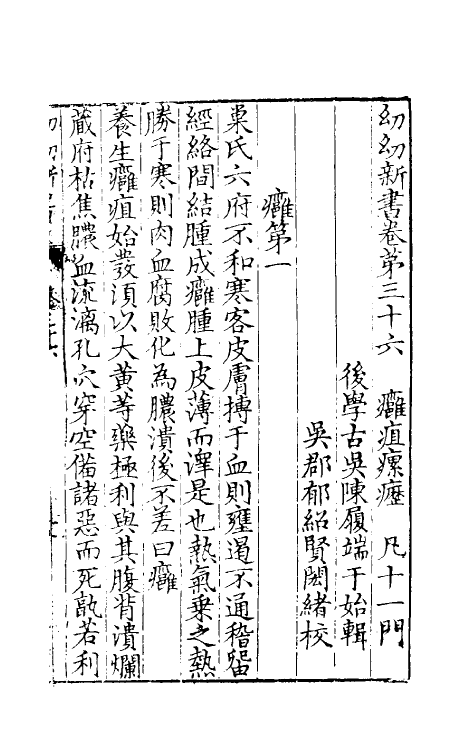 幼幼新書卷第三十六　癰疽瘰癧　凡十一門
後學古吳陳履端于始輯
吳郡郁紹賢閎緒校
癰第一
巢氏六府不和寒客皮膚搏于血則壅遏不通稽留
經絡間結腫成癰腫上皮薄而澤是也熱氣乗之熱
勝于寒則肉血腐敗化為膿潰後不差曰癰
養生癰疽始發須以大黃等藥極利與其腹背潰爛
蔵府枯焦膿血流漓孔穴穿空備諸惡而死孰若利